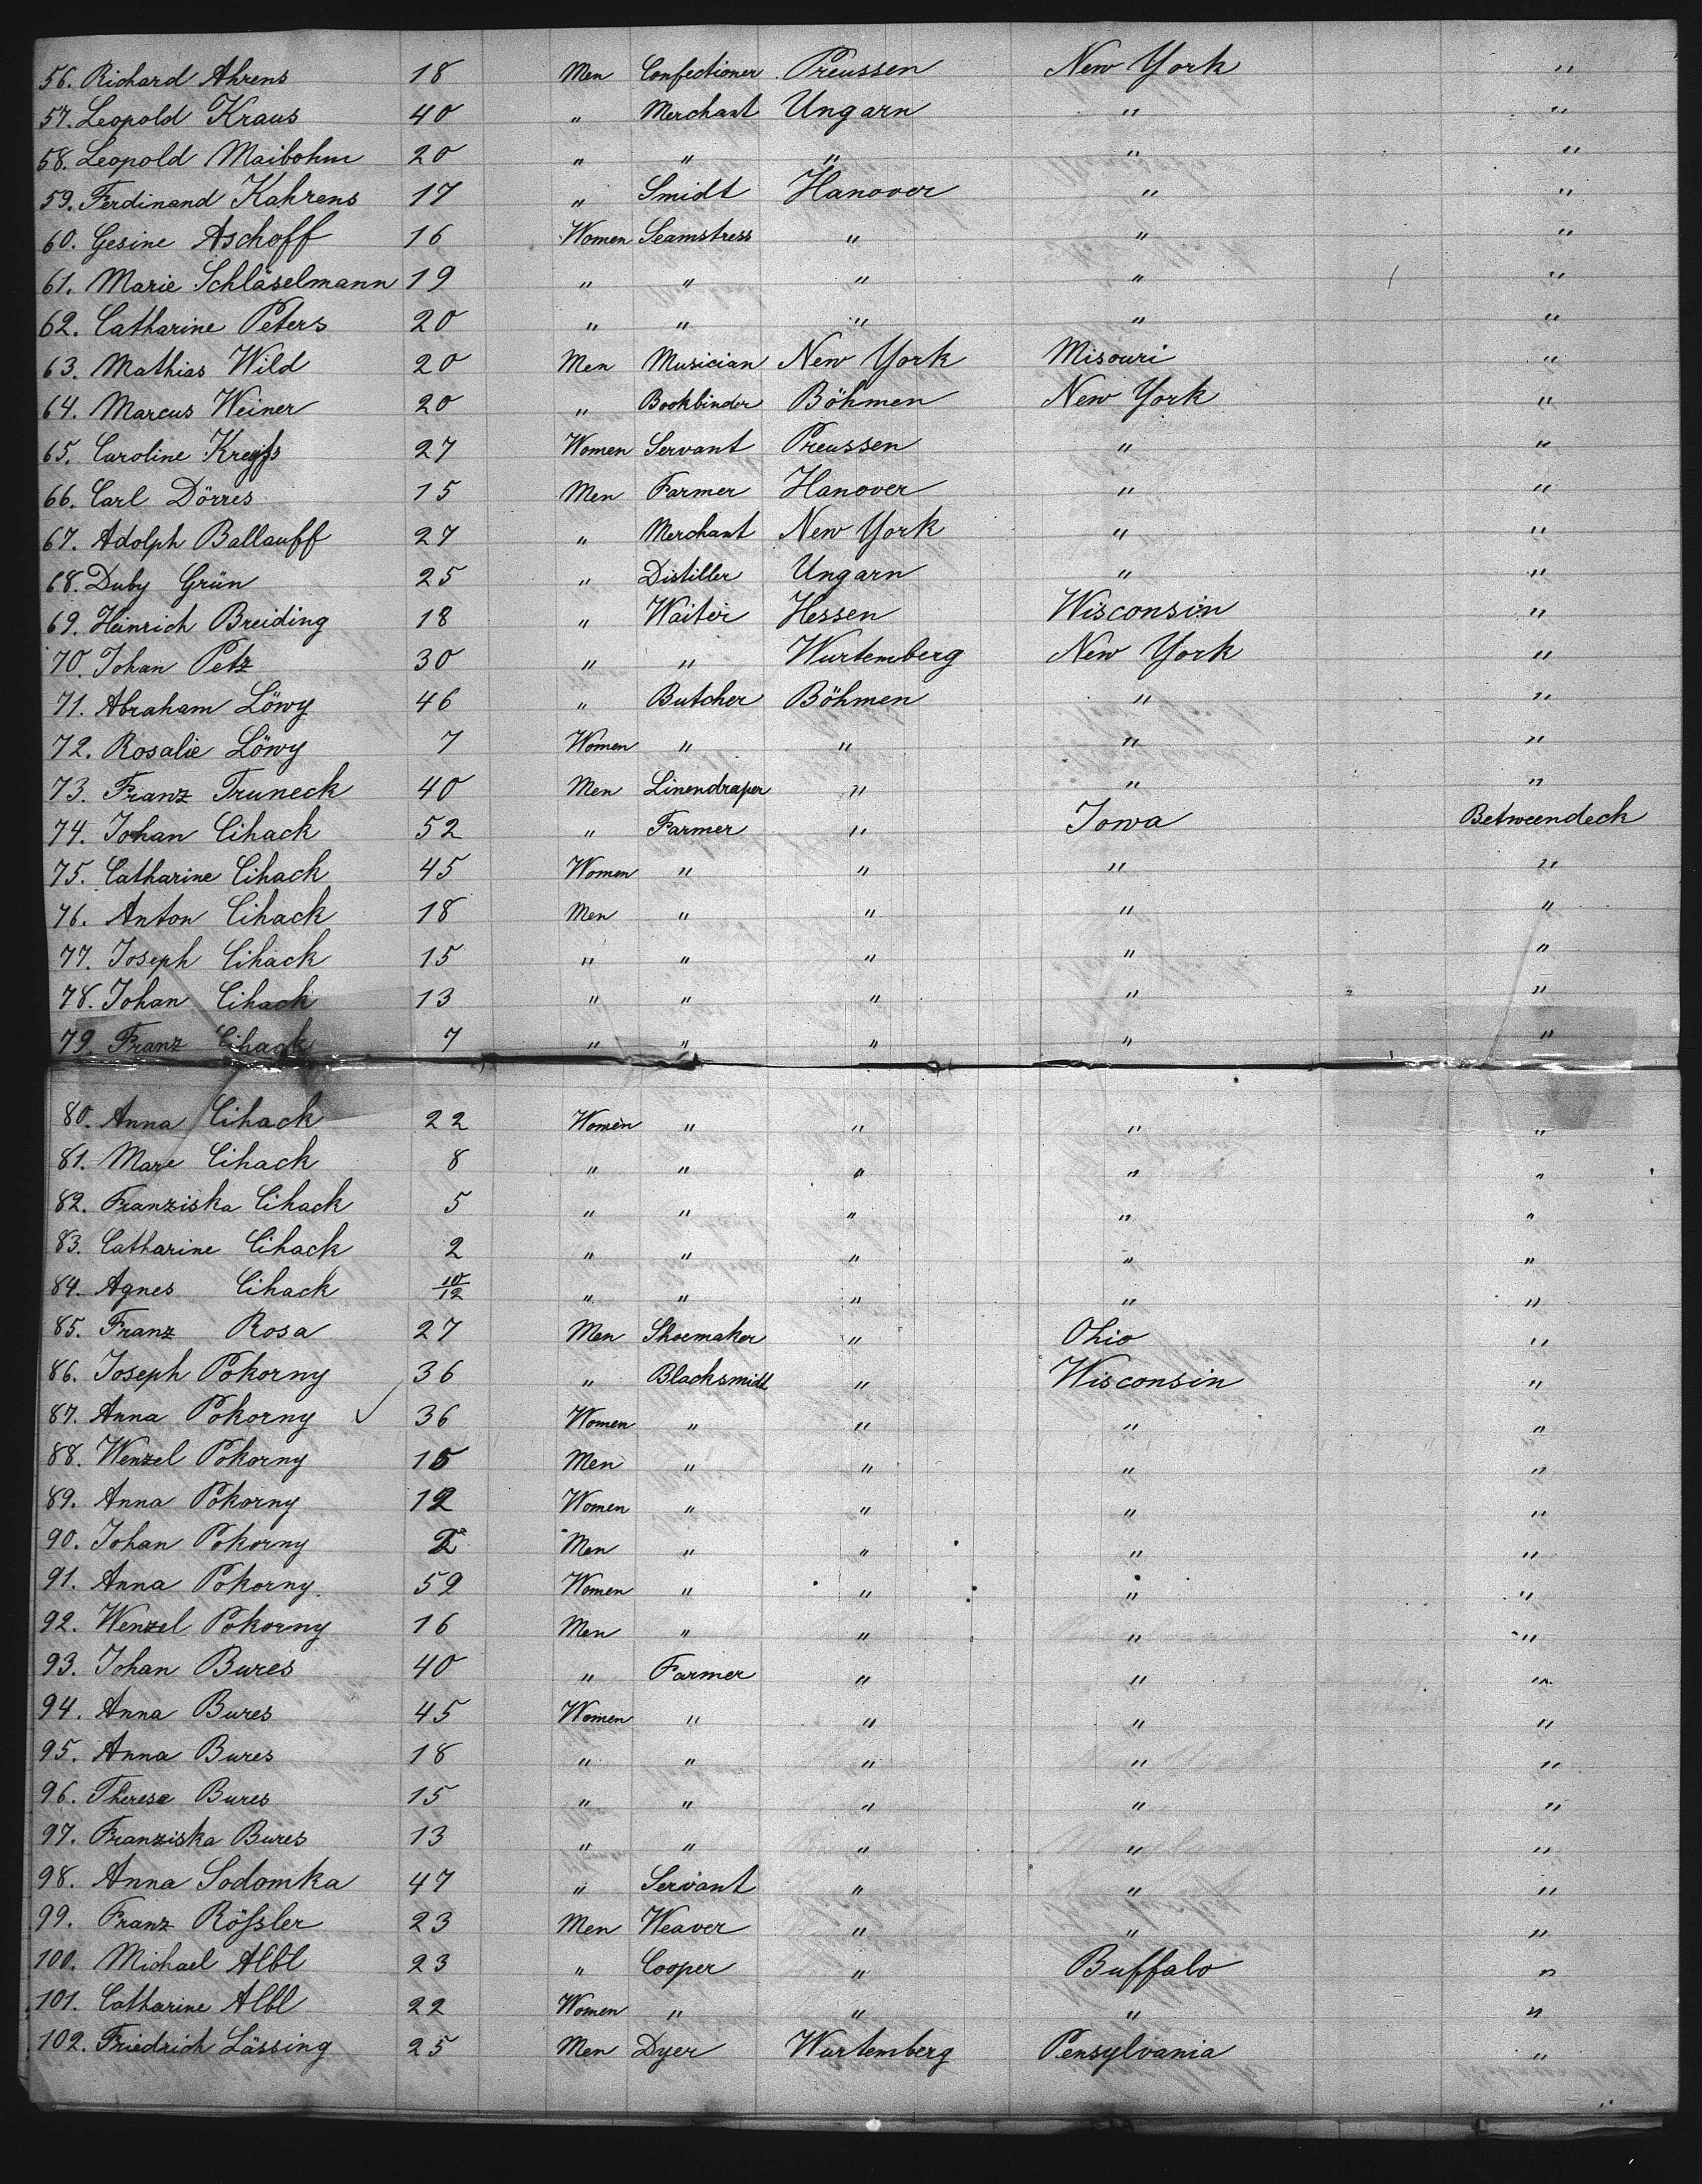 56. Richard Ahrens 18 Men Confectioner Preussen New York "
57. Leopold Kraus 40 " Merchant Ungarn " "
58. Leopold Maibohm 20 " " " " "
59. Ferdinand Kahrens 17 " Smidt Hanover " "
60. Gesine Aschoff 16 Women Seamstress " " "
61. Marie Schläselmann 19 " " " " "
62. Catharine Peters 20 " " " " "
63. Mathias Wild 20 Men Musician New York Misouri "
64. Marcus Weiner 20 " Bookbinder Böhmen New York "
65. Caroline 27 Women Servant Preussen " "
66. Carl Dörres 15 Men Farmer Hanover " "
67. Adolph Ballauff 27 " Merchant New York " "
68. Duby Grün 25 " Distiller Ungarn " "
69. Heinrich Breiding 18 " Waiter Hessen Wisconsin "
70. Johan Petz 30 " " Wurtemberg New York "
71. Abraham Löwy 46 " Butcher Böhmen " "
72. Rosalie Löwy 7 Women " " " "
73. Franz Truneck 40 Men Linendraper " " "
74. Johan Cihack 52 " Farmer " Iowa Betweendeck
75. Catharine Cihack 45 Women " " " "
76. Anton Cihack 18 Men " " " "
77. Joseph Cihack 15 " " " " "
78. Johan Cihack 13 " " " " "
79. Franz Cihack 7 " " " " "
80. Anna Cihack 22 Women " " " "
81. Mare Cihack 8 " " " " "
82. Franziska Cihack 5 " " " " "
83. Catharine Cihack 2 " " " " "
84. Agnes Cihack 10/12 " " " " "
85. Franz Rosa 27 Men Shoemaker " Ohio "
86. Joseph Pokorny 36 " Blacksmidt " Wisconsin "
87. Anna Pokorny ✓ 36 Women " " " "
88. Wenzel Pokorny 15 Men " " " "
89. Anna Pokorny 12 Women " " " "
90. Johan Pokorny 2 Men " " " "
91. Anna Pokorny 59 Women " " " "
92. Wenzel Pokorny 16 Men " " " "
93. Johan Bures 40 " Farmer " " "
94. Anna Bures 45 Women " " " "
95. Anna Bures 18 " " " " "
96. Therese Bures 15 " " " " "
97. Franziska Bures 13 " " " " "
98. Anna Sodomka 47 " Servant " " "
99. Franz Rößler 23 Men Weaver " " "
100. Michael Albl 23 " Cooper " Buffalo "
101. Catharine Albl 22 Women " " " "
102. Friedrich Lässing 25 Men Dyer Wurtemberg Pensylvania "